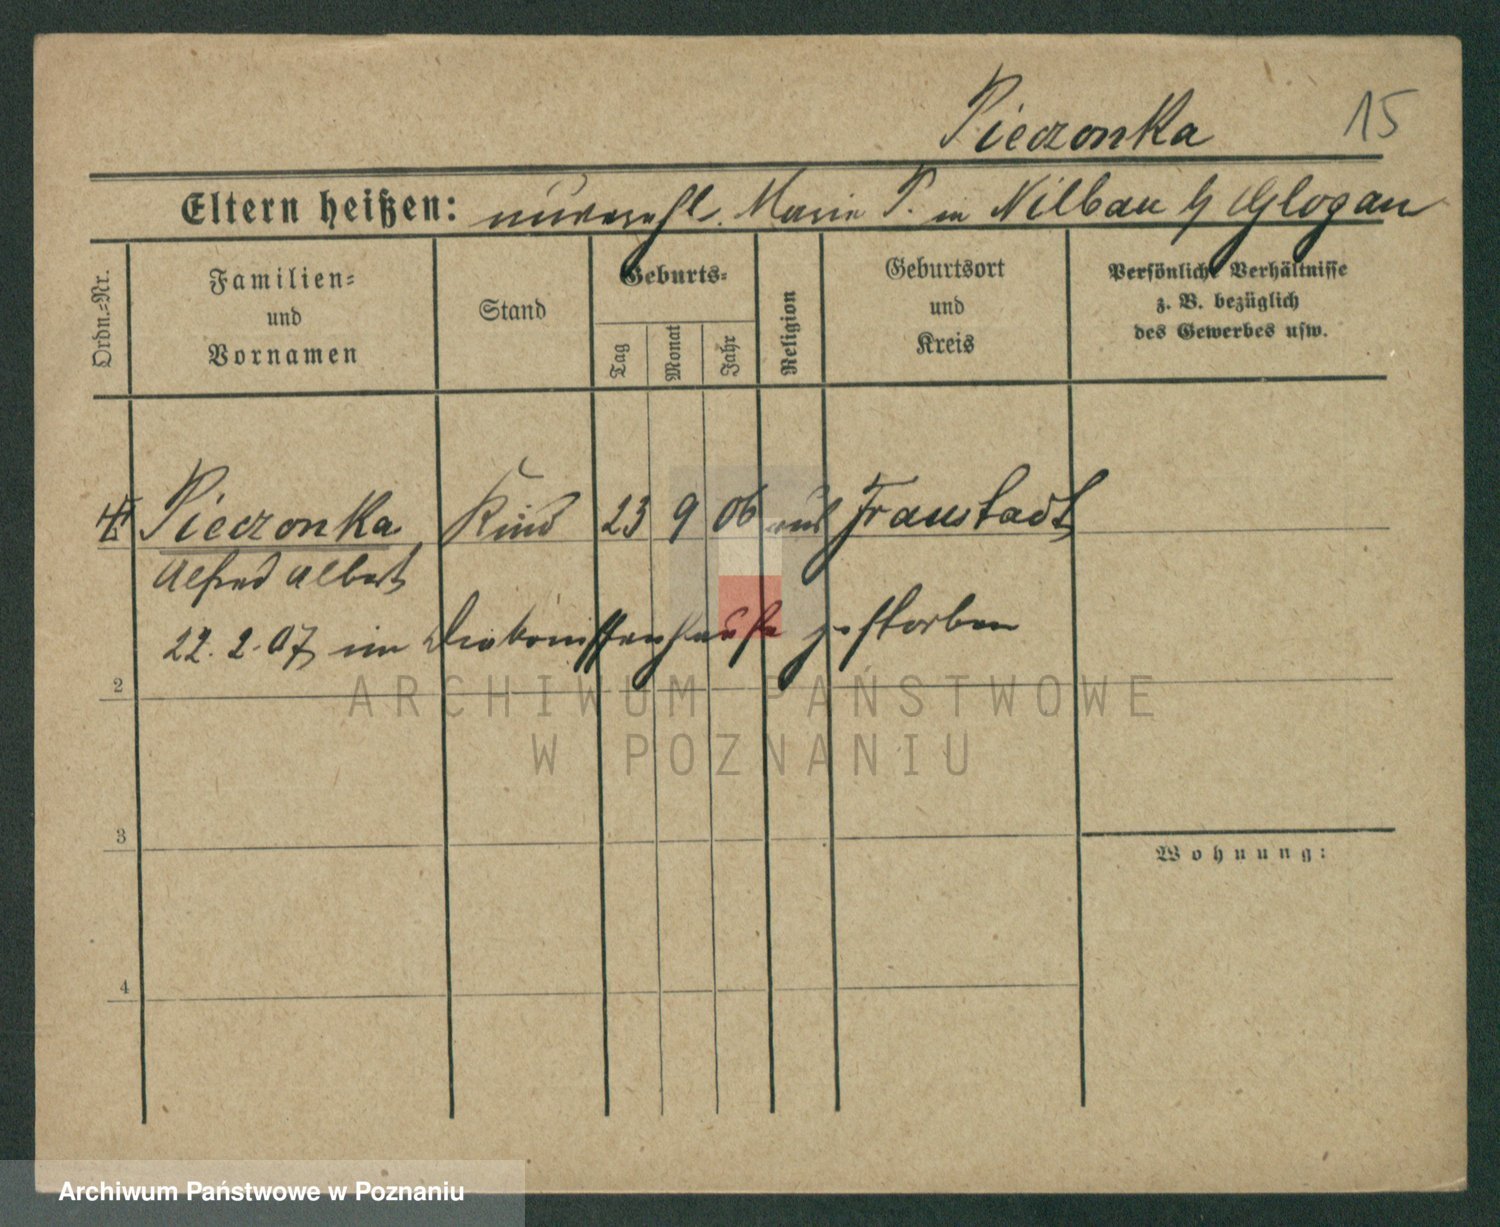 Pieczonka 15
Eltern heißen: unverehl. Marie P. in Nilbau b/ Glogau
Ordn.-Nr.
Familien- und Vornamen
Stand
Geburts-
Tag
Monat
Jahr
Religion
Geburtsort und Kreis
Persönliche Verhältnisse
z. B. bezüglich
des Gewerbes usw.
Pieczonka Kind 23 9 06 Fraustadt
Alfred Albert
22. 2. 07 im Diakonissenhause gestorben
2
3
Wohnung:
4
ARCHIWUM PAŃSTWOWE
W POZNANIU
Archiwum Państwowe w Poznaniu